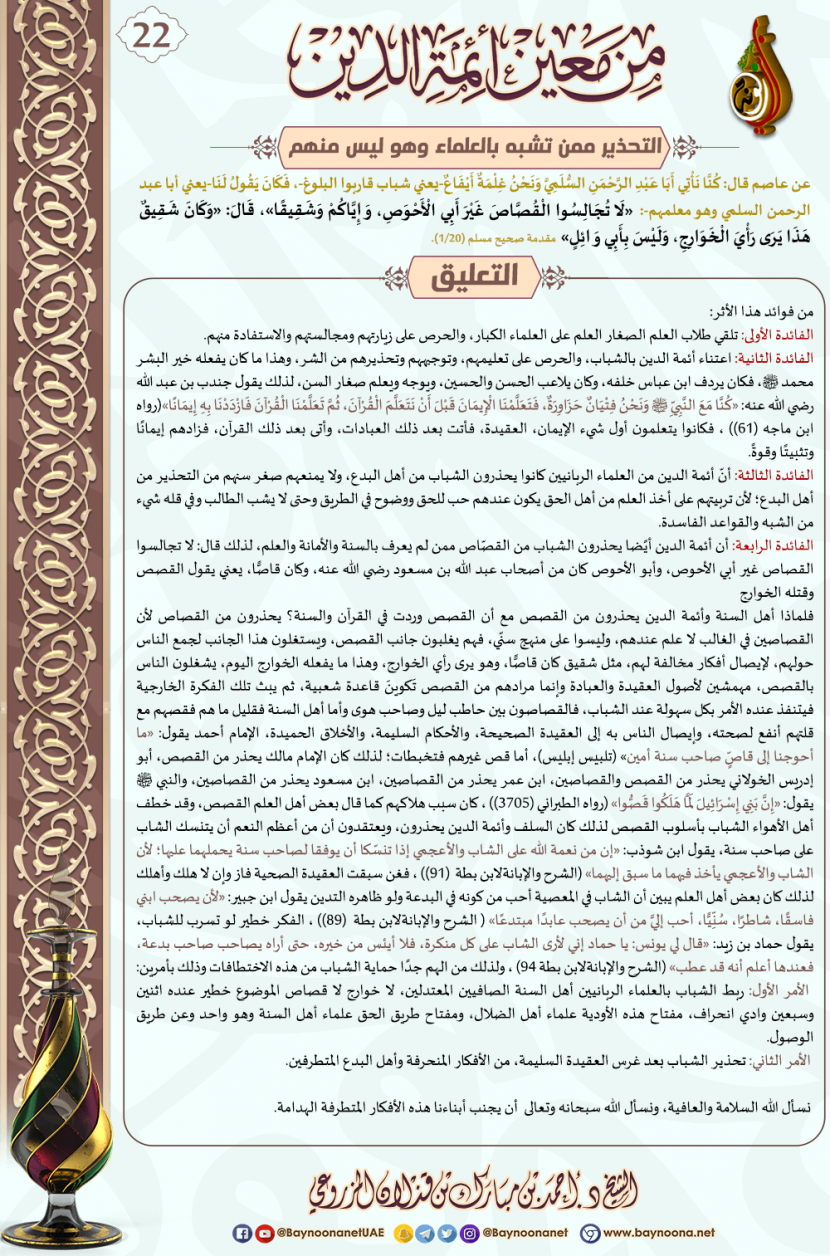 22
مِن مَعين أئِمَةِ الدِين
التحذير ممن تشبه بالعلماء وهو ليس منهم
عن عاصم قال: كُنَّا نَأْتِي أَبَا عَبْدِ الرَّحْمَنِ السُّلَمِيَّ وَنَحْنُ غِلْمَةٌ أَيْفَاعٌ-يعني شباب قاربوا البلوغ-، فَكَانَ يَقُولُ لَنَا-يعني أبا عبد
الرحمن السلمي وهو معلمهم-: «لَا تُجَالِسُوا الْقُصَّاصَ غَيْرَ أَبِي الْأَحْوَصِ، وَإِيَّاكُمْ وَشَقِيقًا»، قَالَ: «وَكَانَ شَقِيقٌ
هَذَا يَرَى رَأْيَ الْخَوَارِجِ، وَلَيْسَ بِأَبِي وَائِلٍ» مقدمة صحيح مسلم (1/20).
التعليق
من فوائد هذا الأثر:
الفائدة الأولى: تلقي طلاب العلم الصغار العلم على العلماء الكبار، والحرص على زيارتهم ومجالستهم والاستفادة منهم.
الفائدة الثانية: اعتناء أئمة الدين بالشباب، والحرص على تعليمهم، وتوجيههم وتحذيرهم من الشر، وهذا ما كان يفعله خير البشر
محمد ﷺ، فكان يردف ابن عباس خلفه، وكان يلاعب الحسن والحسين، ويوجه ويعلم صغار السن، لذلك يقول جندب بن عبد الله
رضي الله عنه: «كُنَّا مَعَ النَّبِيِّ ﷺ وَنَحْنُ فِتْيَانٌ حَزَاوِرَةٌ، فَتَعَلَّمْنَا الْإِيمَانَ قَبْلَ أَنْ نَتَعَلَّمَ الْقُرْآنَ، ثُمَّ تَعَلَّمْنَا الْقُرْآنَ فَازْدَدْنَا بِهِ إِيمَانًا»(رواه
ابن ماجه (61)) ، فكانوا يتعلمون أول شيء الإيمان، العقيدة، فأتت بعد ذلك العبادات، وأتى بعد ذلك القرآن، فزادهم إيمانًا
وتثبيتًا وقوةً.
الفائدة الثالثة: أنّ أئمة الدين من العلماء الربانيين كانوا يحذرون الشباب من أهل البدع، ولا يمنعهم صغر سنهم من التحذير من
أهل البدع؛ لأن تربيتهم على أخذ العلم من أهل الحق يكون عندهم حب للحق ووضوح في الطريق وحتى لا يشب الطالب وفي قله شيء
من الشبه والقواعد الفاسدة.
الفائدة الرابعة: أن أئمة الدين أيضًا يحذرون الشباب من القصّاص ممن لم يعرف بالسنة والأمانة والعلم، لذلك قال: لا تجالسوا
القصاص غير أبي الأحوص، وأبو الأحوص كان من أصحاب عبد الله بن مسعود رضي الله عنه، وكان قاصًّا، يعني يقول القصص
وقتله الخوارج
فلماذا أهل السنة وأئمة الدين يحذرون من القصص مع أن القصص وردت في القرآن والسنة؟ يحذرون من القصاص لأن
القصاصين في الغالب لا علم عندهم، وليسوا على منهج سنّي، فهم يغلبون جانب القصص، ويستغلون هذا الجانب لجمع الناس
حولهم، لإيصال أفكار مخالفة لهم، مثل شقيق كان قاصًّا، وهو يرى رأي الخوارج، وهذا ما يفعله الخوارج اليوم، يشغلون الناس
بالقصص، مهمشين لأصول العقيدة والعبادة وإنما مرادهم من القصص تَكوينَ قاعدة شعبية، ثم يبث تلك الفكرة الخارجية
فيتنفذ عنده الأمر بكل سهولة عند الشباب، فالقصاصون بين حاطب ليل وصاحب هوى وأما أهل السنة فقليل ما هم فقصهم مع
قلتهم أنفع لصحته، وإيصال الناس به إلى العقيدة الصحيحة، والأحكام السليمة، والأخلاق الحميدة، الإمام أحمد يقول: «ما
أحوجنا إلى قاصّ صاحب سنة أمين» (تلبيس إبليس)، أما قص غيرهم فتخبطات؛ لذلك كان الإمام مالك يحذر من القصص، أبو
إدريس الخولاني يحذر من القصص والقصاصين، ابن عمر يحذر من القصاصين، ابن مسعود يحذر من القصاصين، والنبي ﷺ
يقول: «إِنَّ بَنِي إِسْرَائِيلَ لَمَّا هَلَكُوا قَصُّوا» (رواه الطبراني (3705)) ، كان سبب هلاكهم كما قال بعض أهل العلم القصص، وقد خطف
أهل الأهواء الشباب بأسلوب القصص لذلك كان السلف وأئمة الدين يحذرون، ويعتقدون أن من أعظم النعم أن يتنسك الشاب
على صاحب سنة، يقول ابن شوذب: «إن من نعمة الله على الشاب والأعجمي إذا تنسّكا أن يوفقا لصاحب سنة يحملهما عليها؛ لأن
الشاب والأعجمي يأخذ فيهما ما سبق إليهما» (الشرح والإبانةلابن بطة (91)) ، فغن سبقت العقيدة الصحية فاز وإن لا هلك وأهلك
لذلك كان بعض أهل العلم يبين أن الشاب في المعصية أحب من كونه في البدعة ولو ظاهره التدين يقول ابن جبير: «لأن يصحب ابني
فاسقًا، شاطرًا، سُنّيًّا، أحب إليَّ من أن يصحب عابدًا مبتدعًا» ( الشرح والإبانةلابن بطة (89)) ، الفكر خطير لو تسرب للشباب،
يقول حماد بن زيد: «قال لي يونس: يا حماد إني لأرى الشاب على كل منكرة، فلا أيئس من خيره، حتى أراه يصاحب صاحب بدعة،
فعندها أعلم أنه قد عطب» (الشرح والإبانةلابن بطة 94) ، ولذلك من الهم جدًا حماية الشباب من هذه الاختطافات وذلك بأمرين:
الأمر الأول: ربط الشباب بالعلماء الربانيين أهل السنة الصافيين المعتدلين، لا خوارج لا قصاص الموضوع خطير عنده اثنين
وسبعين وادي انحراف، مفتاح هذه الأودية علماء أهل الضلال، ومفتاح طريق الحق علماء أهل السنة وهو واحد وعن طريق
الوصول.
الأمر الثاني: تحذير الشباب بعد غرس العقيدة السليمة، من الأفكار المنحرفة وأهل البدع المتطرفين.
نسأل الله السلامة والعافية، ونسأل الله سبحانه وتعالى أن يجنب أبناءنا هذه الأفكار المتطرفة الهدامة.
الشيخ د. أحمد بن مبارك بن قذلان المزروعي
@BaynoonanetUAE @Baynoonanet www.baynoona.net